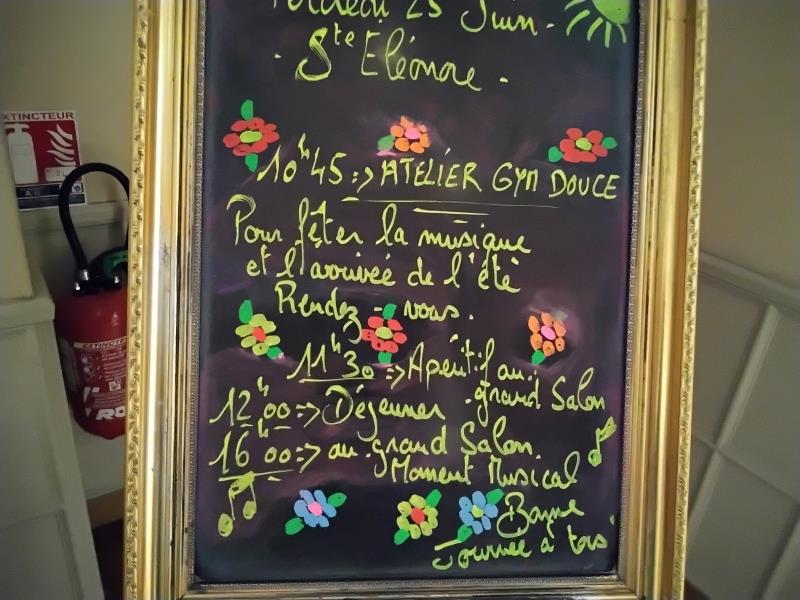 25 Juin.
. Ste Eléonore .
10h45 => ATELIER GYM DOUCE
Pour fêter la musique
et l'arrivée de l'été
Rendez-vous.
11h30 => Apéritif au grand Salon
12h00 => Déjeuner.
16h00 => au grand Salon.
Moment Musical
Bonne
Journée à tous
EXTINCTEUR